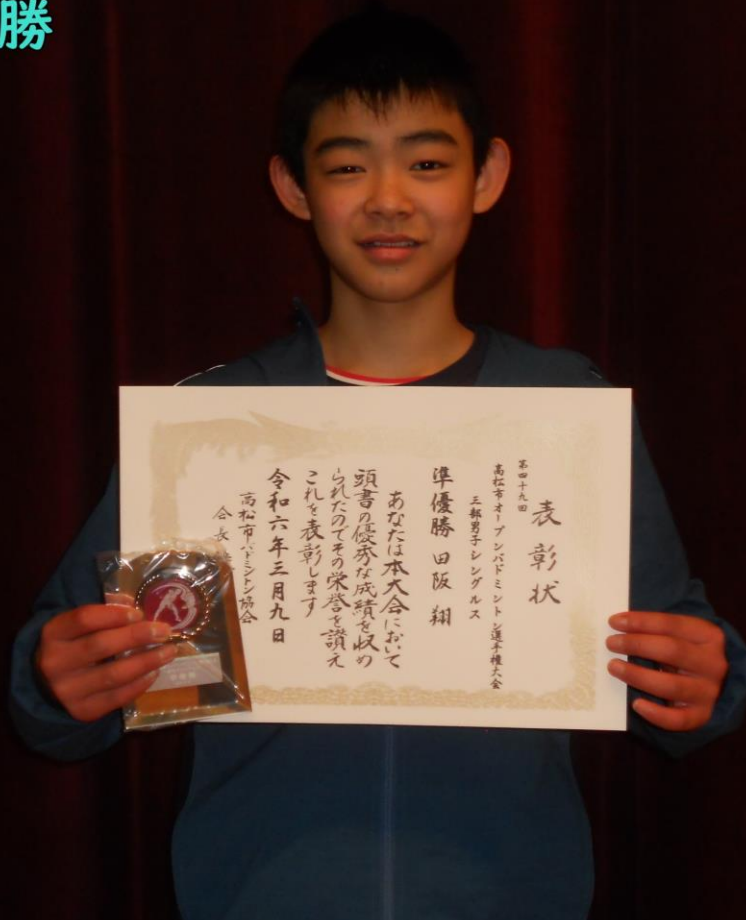 勝
表彰状
第四十九回
高松市オープンバドミントン選手権大会
三部男子シングルス
準優勝 田阪 翔
あなたは本大会において
頭書の優秀な成績を収め
られたのでその栄誉を讃え
これを表彰します
令和六年三月九日
高松市バドミントン協会
会長